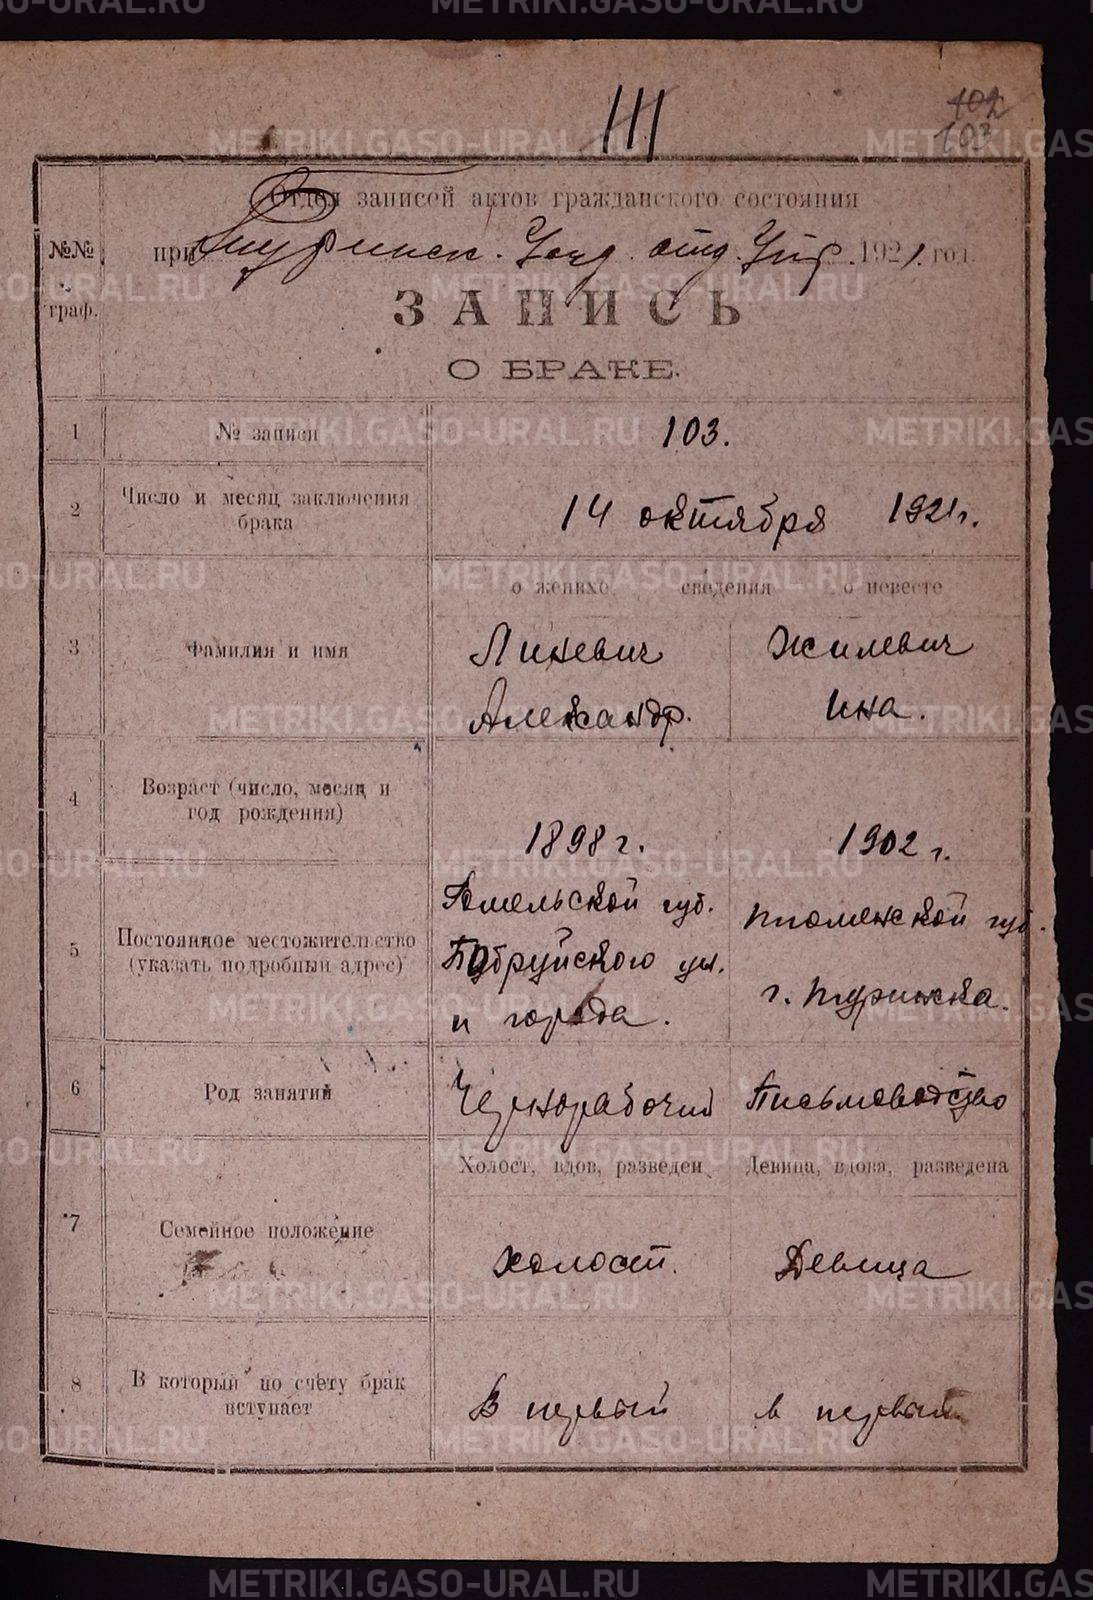 METRIKI.GASO-URAL.RU
111
102
103
Отдел записей актов гражданского состояния
при Туринск. Уезд. отд. Упр. 1921. год.
№№ граф.
ЗАПИСЬ
О БРАКЕ.
1 № записи 103.
2 Число и месяц заключения брака 14 октября 1921 г.
о женихе сведения о невесте
3 Фамилия и имя
Линевич Жилевич
Александр. Ина.
4 Возраст (число, месяц и год рождения)
1898 г. 1902 г.
5 Постоянное местожительство (указать подробный адрес)
Гомельской губ. Тюменской губ.
Бобруйского у. г. Туринска.
и города.
6 Род занятий Чернорабочий Письмоводство
Холост, вдов, разведен Девица, вдова, разведена
7 Семейное положение холост. Девица
8 В который по счету брак вступает В первый в первый